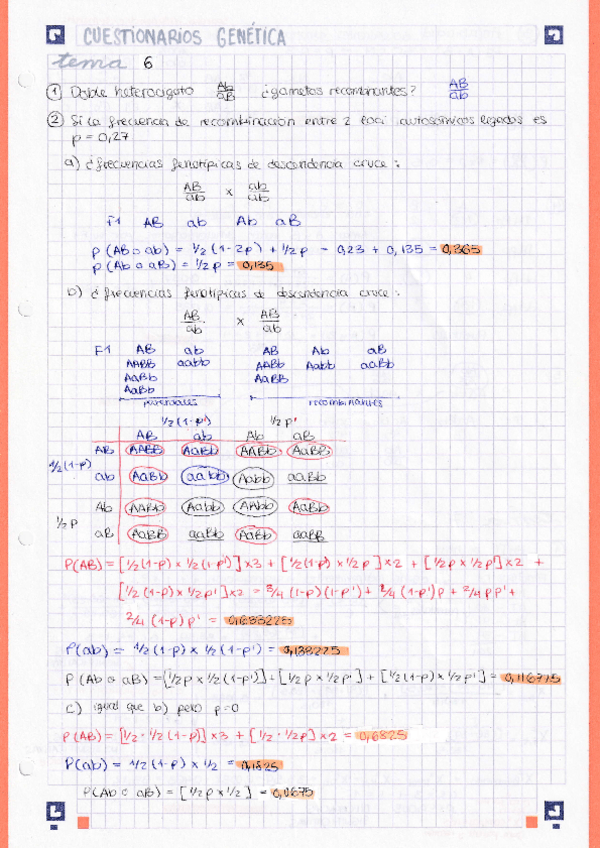 CUESTIONARIOS GENÉTICA
tema 6
① Doble heterocigoto Ab/aB ¿gametos recombinantes? AB/ab
② Si la frecuencia de recombinación entre 2 loci autosómicos ligados es
p = 0,27
a) ¿frecuencias fenotípicas de descendencia cruce:
AB/ab x ab/ab
F1 AB ab Ab aB
p (AB o ab) = 1/2 (1-2p) + 1/2 p = 0,23 + 0,135 = 0,365
p (Ab o aB) = 1/2 p = 0,135
b) ¿frecuencias fenotípicas de descendencia cruce:
AB/ab x AB/ab
F1 AB ab AB Ab aB
AABB aabb AABb Aabb aaBb
AaBb AaBB
AaBb
parentales recombinantes
1/2 (1-p') 1/2 p'
AB ab Ab aB
1/2 (1-p) AB AABB AaBb AABb AaBB
ab AaBb aabb Aabb aaBb
1/2 p Ab AABb Aabb AAbb AaBb
aB AaBB aaBb AaBb aaBB
P(AB) = [1/2 (1-p) x 1/2 (1-p')] x 3 + [1/2 (1-p') x 1/2 p] x 2 + [1/2 p x 1/2 p'] x 2 +
[1/2 (1-p) x 1/2 p'] x 2 = 3/4 (1-p)(1-p') + 2/4 (1-p')p + 2/4 pp' +
2/4 (1-p) p' = 0,633225
P(ab) = 1/2 (1-p) x 1/2 (1-p') = 0,133225
P (Ab o aB) = [1/2 p x 1/2 (1-p')] + [1/2 p x 1/2 p'] + [1/2 (1-p) x 1/2 p'] = 0,116775
c) igual que b) pero p=0
P(AB) = [1/2 · 1/2 (1-p)] x 3 + [1/2 · 1/2 p] x 2 = 0,6825
P(ab) = 1/2 (1-p) x 1/2 = 0,1825
P(Ab o aB) = [1/2 p x 1/2] = 0,0675